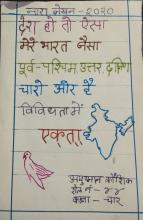 नारा लेखन - 2020
देश हो तो ऐसा
मेरे भारत जैसा
पूर्व-पश्चिम, उत्तर, दक्षिण
चारों और है
विविधता में
एकता
कौशिक
रोल नं - ४४
कक्षा - चार